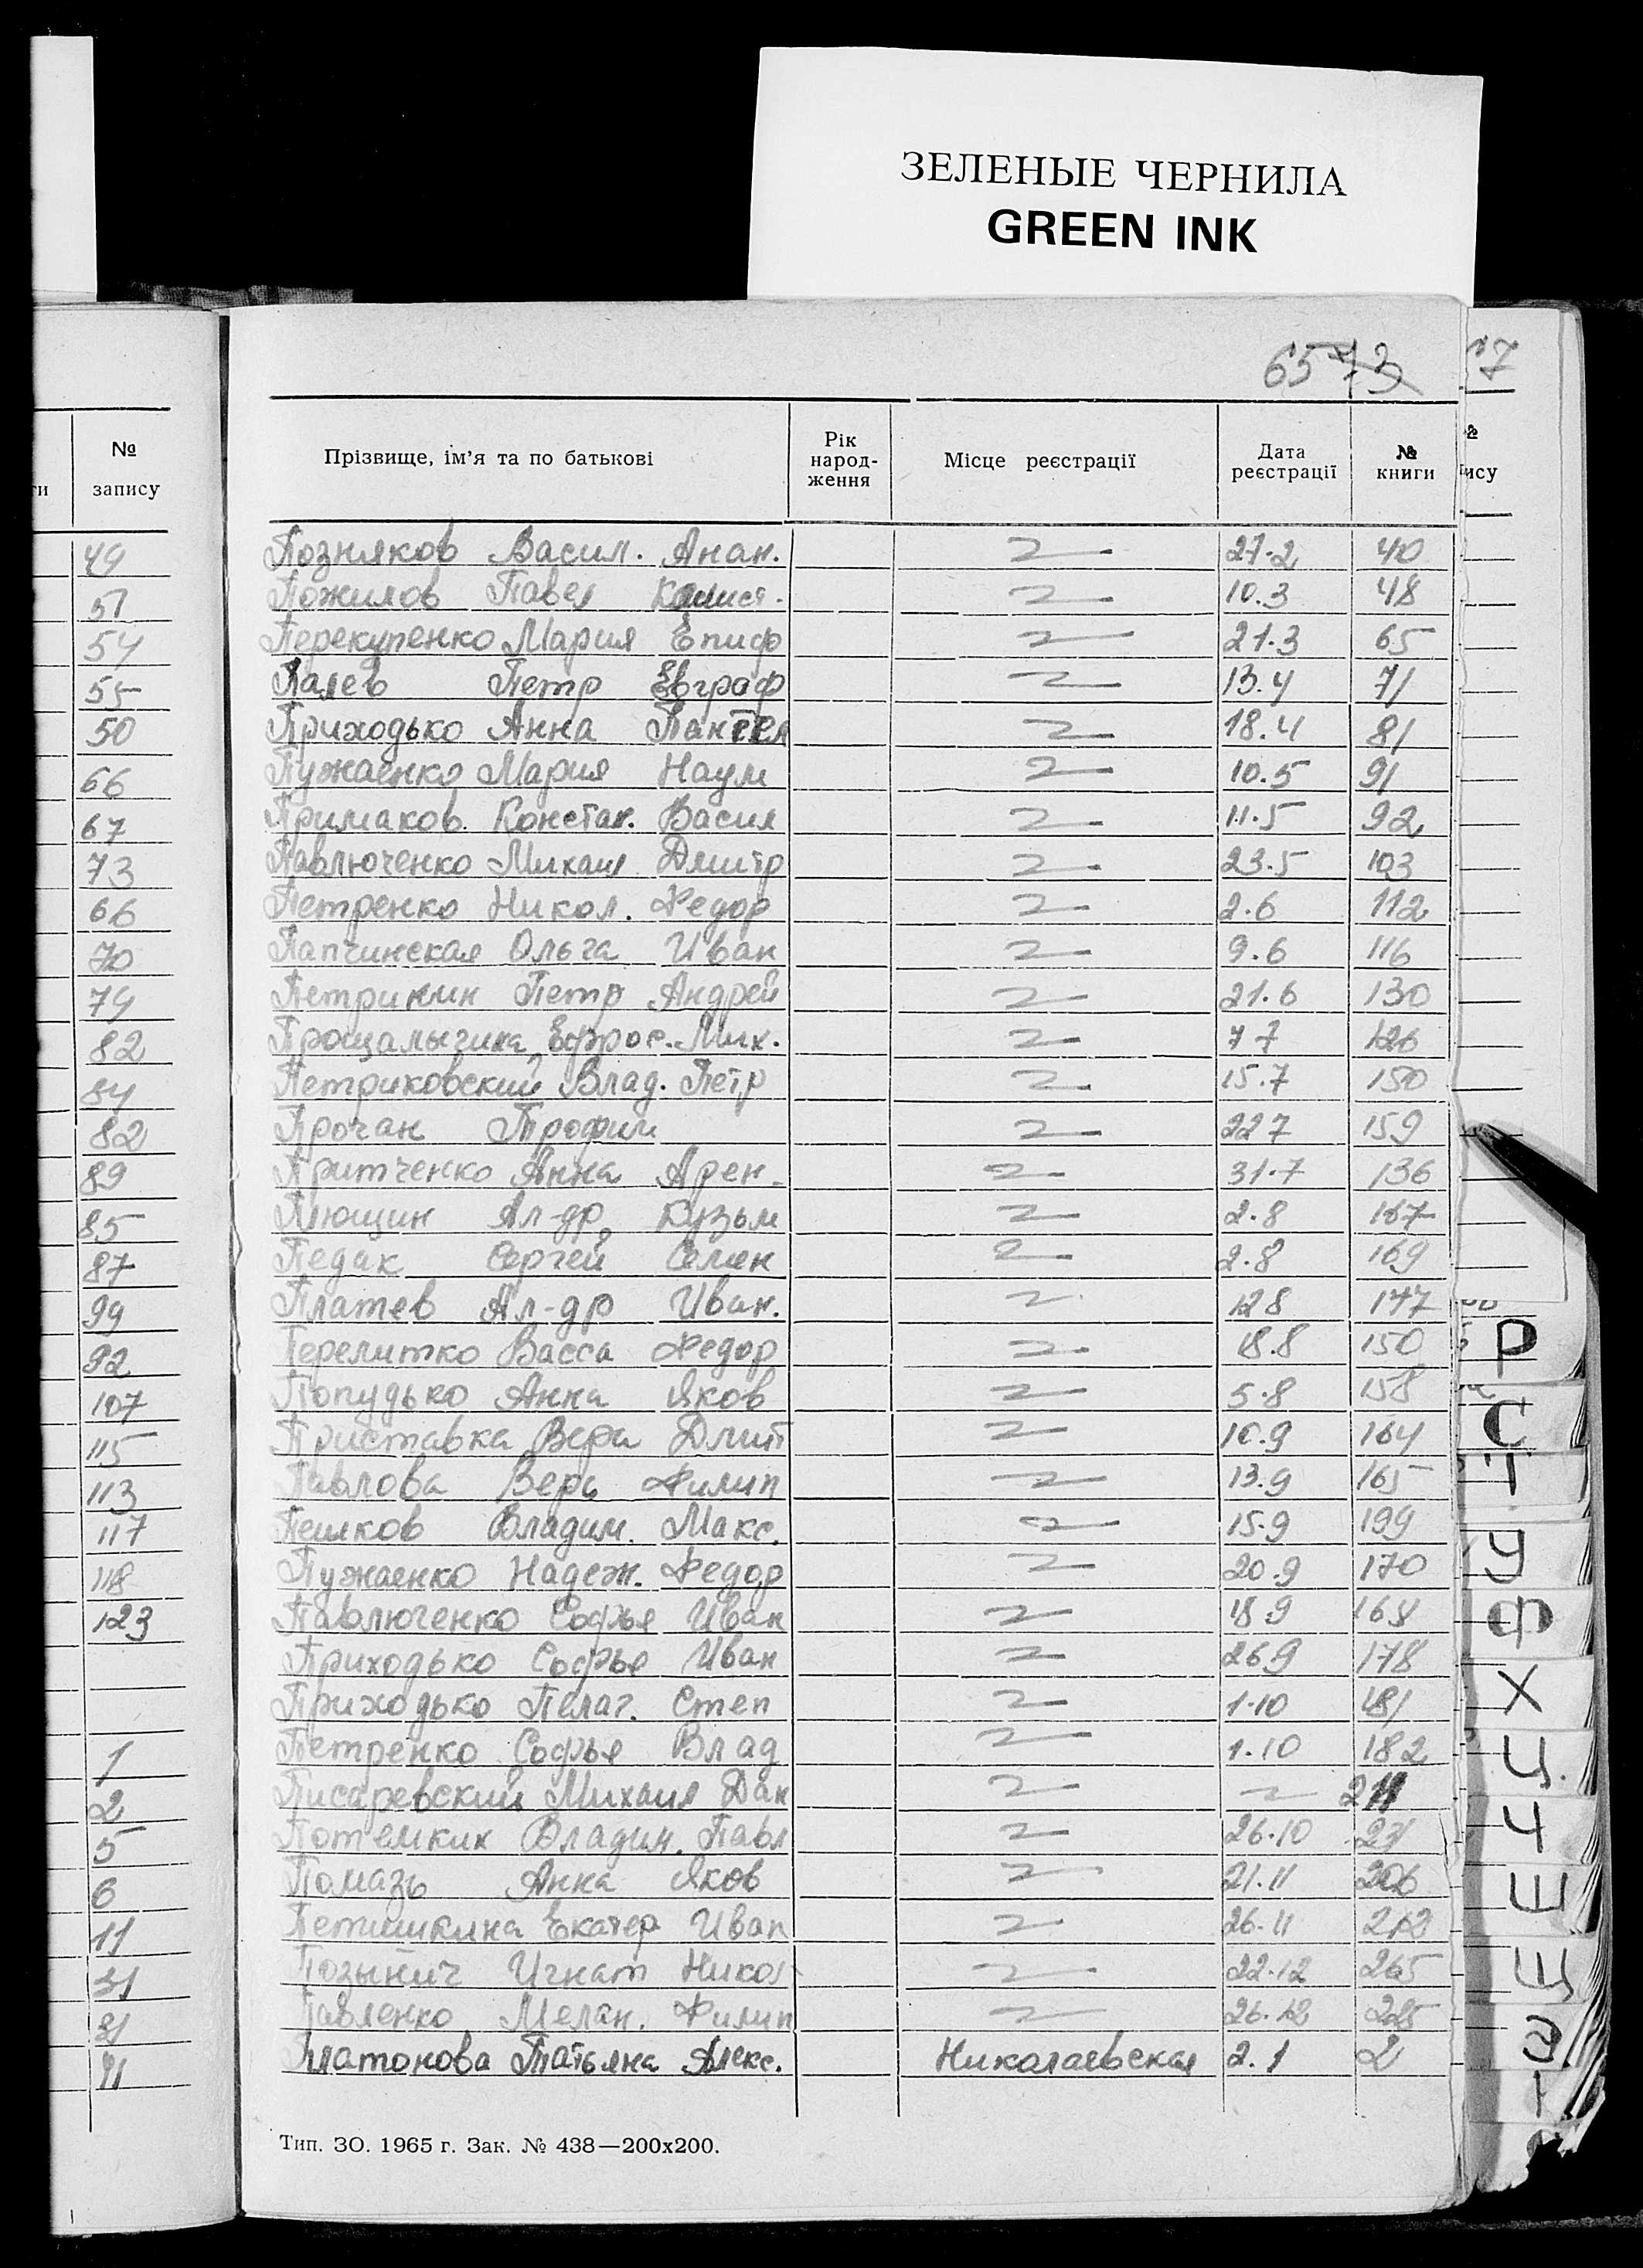 ЗЕЛЕНЫЕ ЧЕРНИЛА
GREEN INK
6573
№ запису
Прізвище, ім'я та по батькові Рік народження Місце реєстрації Дата реєстрації № книги
49 Позняков Васил. Анан. 27.2 40
51 Пожилов Павел 10.3 48
54 Перекупенко Мария Епиф 21.3 65
55 Палев Петр Евграф 13.4 71
50 Приходько Анна Пантел 18.4 81
66 Пужаенко Мария Наум 10.5 91
67 Примаков Констан. Васил 11.5 92
73 Павлюченко Михаил Дмитр 23.5 103
66 Петренко Никол. Федор 2.6 112
70 Папчинская Ольга Иван 9.6 116
79 Петрикин Петр Андрей 21.6 130
82 Прощалыгина Ефрос. Мих. 7 7 126
84 Петриковский Влад. Петр 15.7 150
82 Прочан Трофим 22 7 159
89 Притченко Анна Арен. 31.7 136
85 Плющин Ал-др Кузьм 2.8 167
87 Педак Сергей Семен 2.8 169
99 Платев Ал-др Иван. 12 8 147
92 Перелитко Васса Федор 18.8 150
107 Попудько Анна Яков 5.8 158
115 Приставка Вера Дмит 10.9 164
113 Павлова Вера Филип 13.9 165
117 Пешков Владим. Макс. 15.9 199
118 Пужаенко Надеж. Федор 20.9 170
123 Павлюченко Софья Иван 18 9 168
Приходько Софья Иван 26 9 178
Приходько Пелаг. Степ 1.10 181
1 Петренко Софья Влад 1.10 182
2 Писаревский Михаил Дан 211
5 Потемкин Владим. Павл 26.10 231
6 Помазь Анна Яков 21.11 206
11 Петишкина Екатер Иван 26.11 212
31 Позынич Игнат Никол 22.12 265
31 Павленко Мелан. Филип 26.12 225
41 Платонова Татьяна Алекс. Николаевская 2.1 2
Тип. ЗО. 1965 г. Зак. № 438—200х200.
Р
С
Т
У
Ф
Х
Ц.
Ч
Ш
Щ
Э